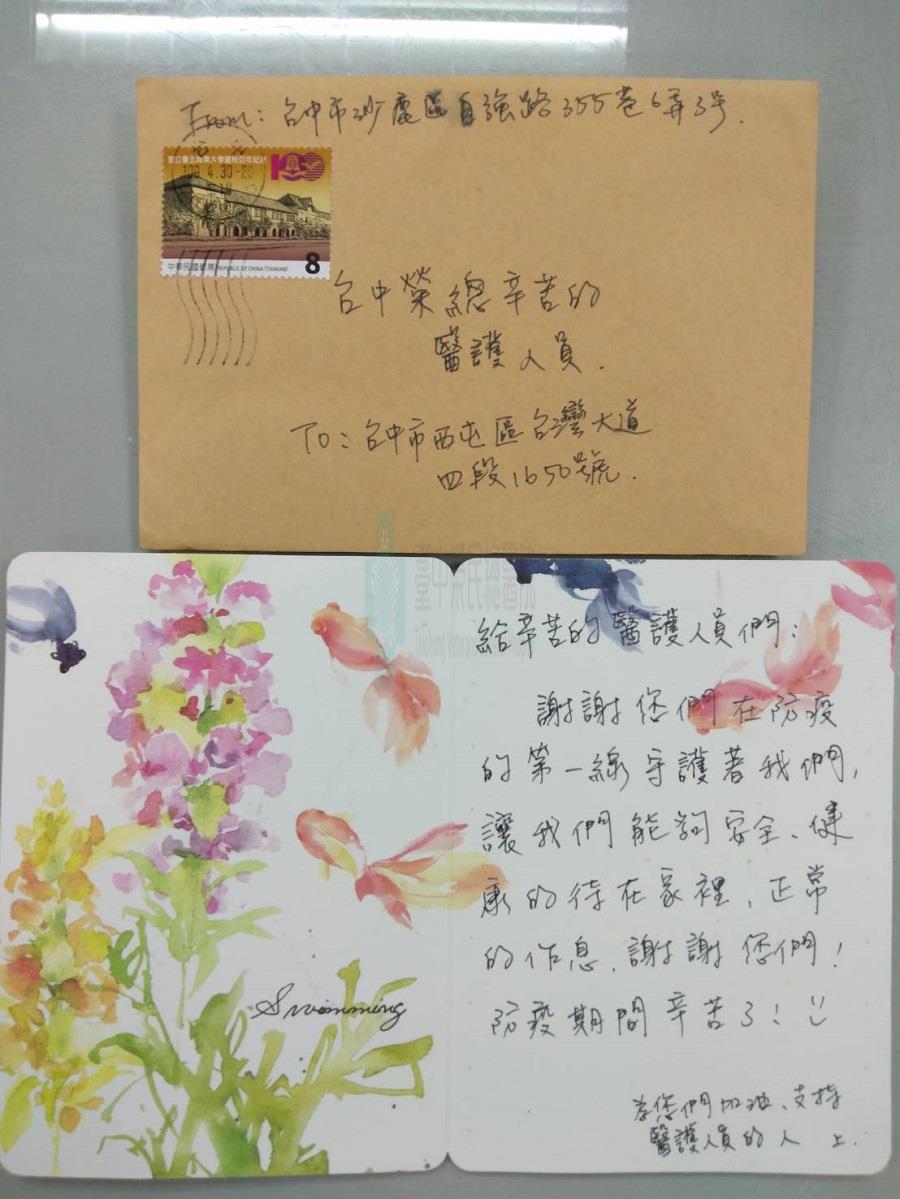 From: 台中市沙鹿區自強路355巷6弄3号.
國立臺北商業大學建校百年紀念
100
109.4.30-20
中華民國郵票 REPUBLIC OF CHINA (TAIWAN)
8
台中榮總辛苦的
醫護人員.
TO: 台中市西屯區台灣大道
四段1650號.
臺中榮民總醫院
Taichung Veterans
給辛苦的醫護人員們:
謝謝您們在防疫
的第一線守護著我們,
讓我們能夠安全、健
康的待在家裡、正常
的作息、謝謝您們!
防疫期間辛苦了!
Swimming
為您們加油、支持
醫護人員的人 上.